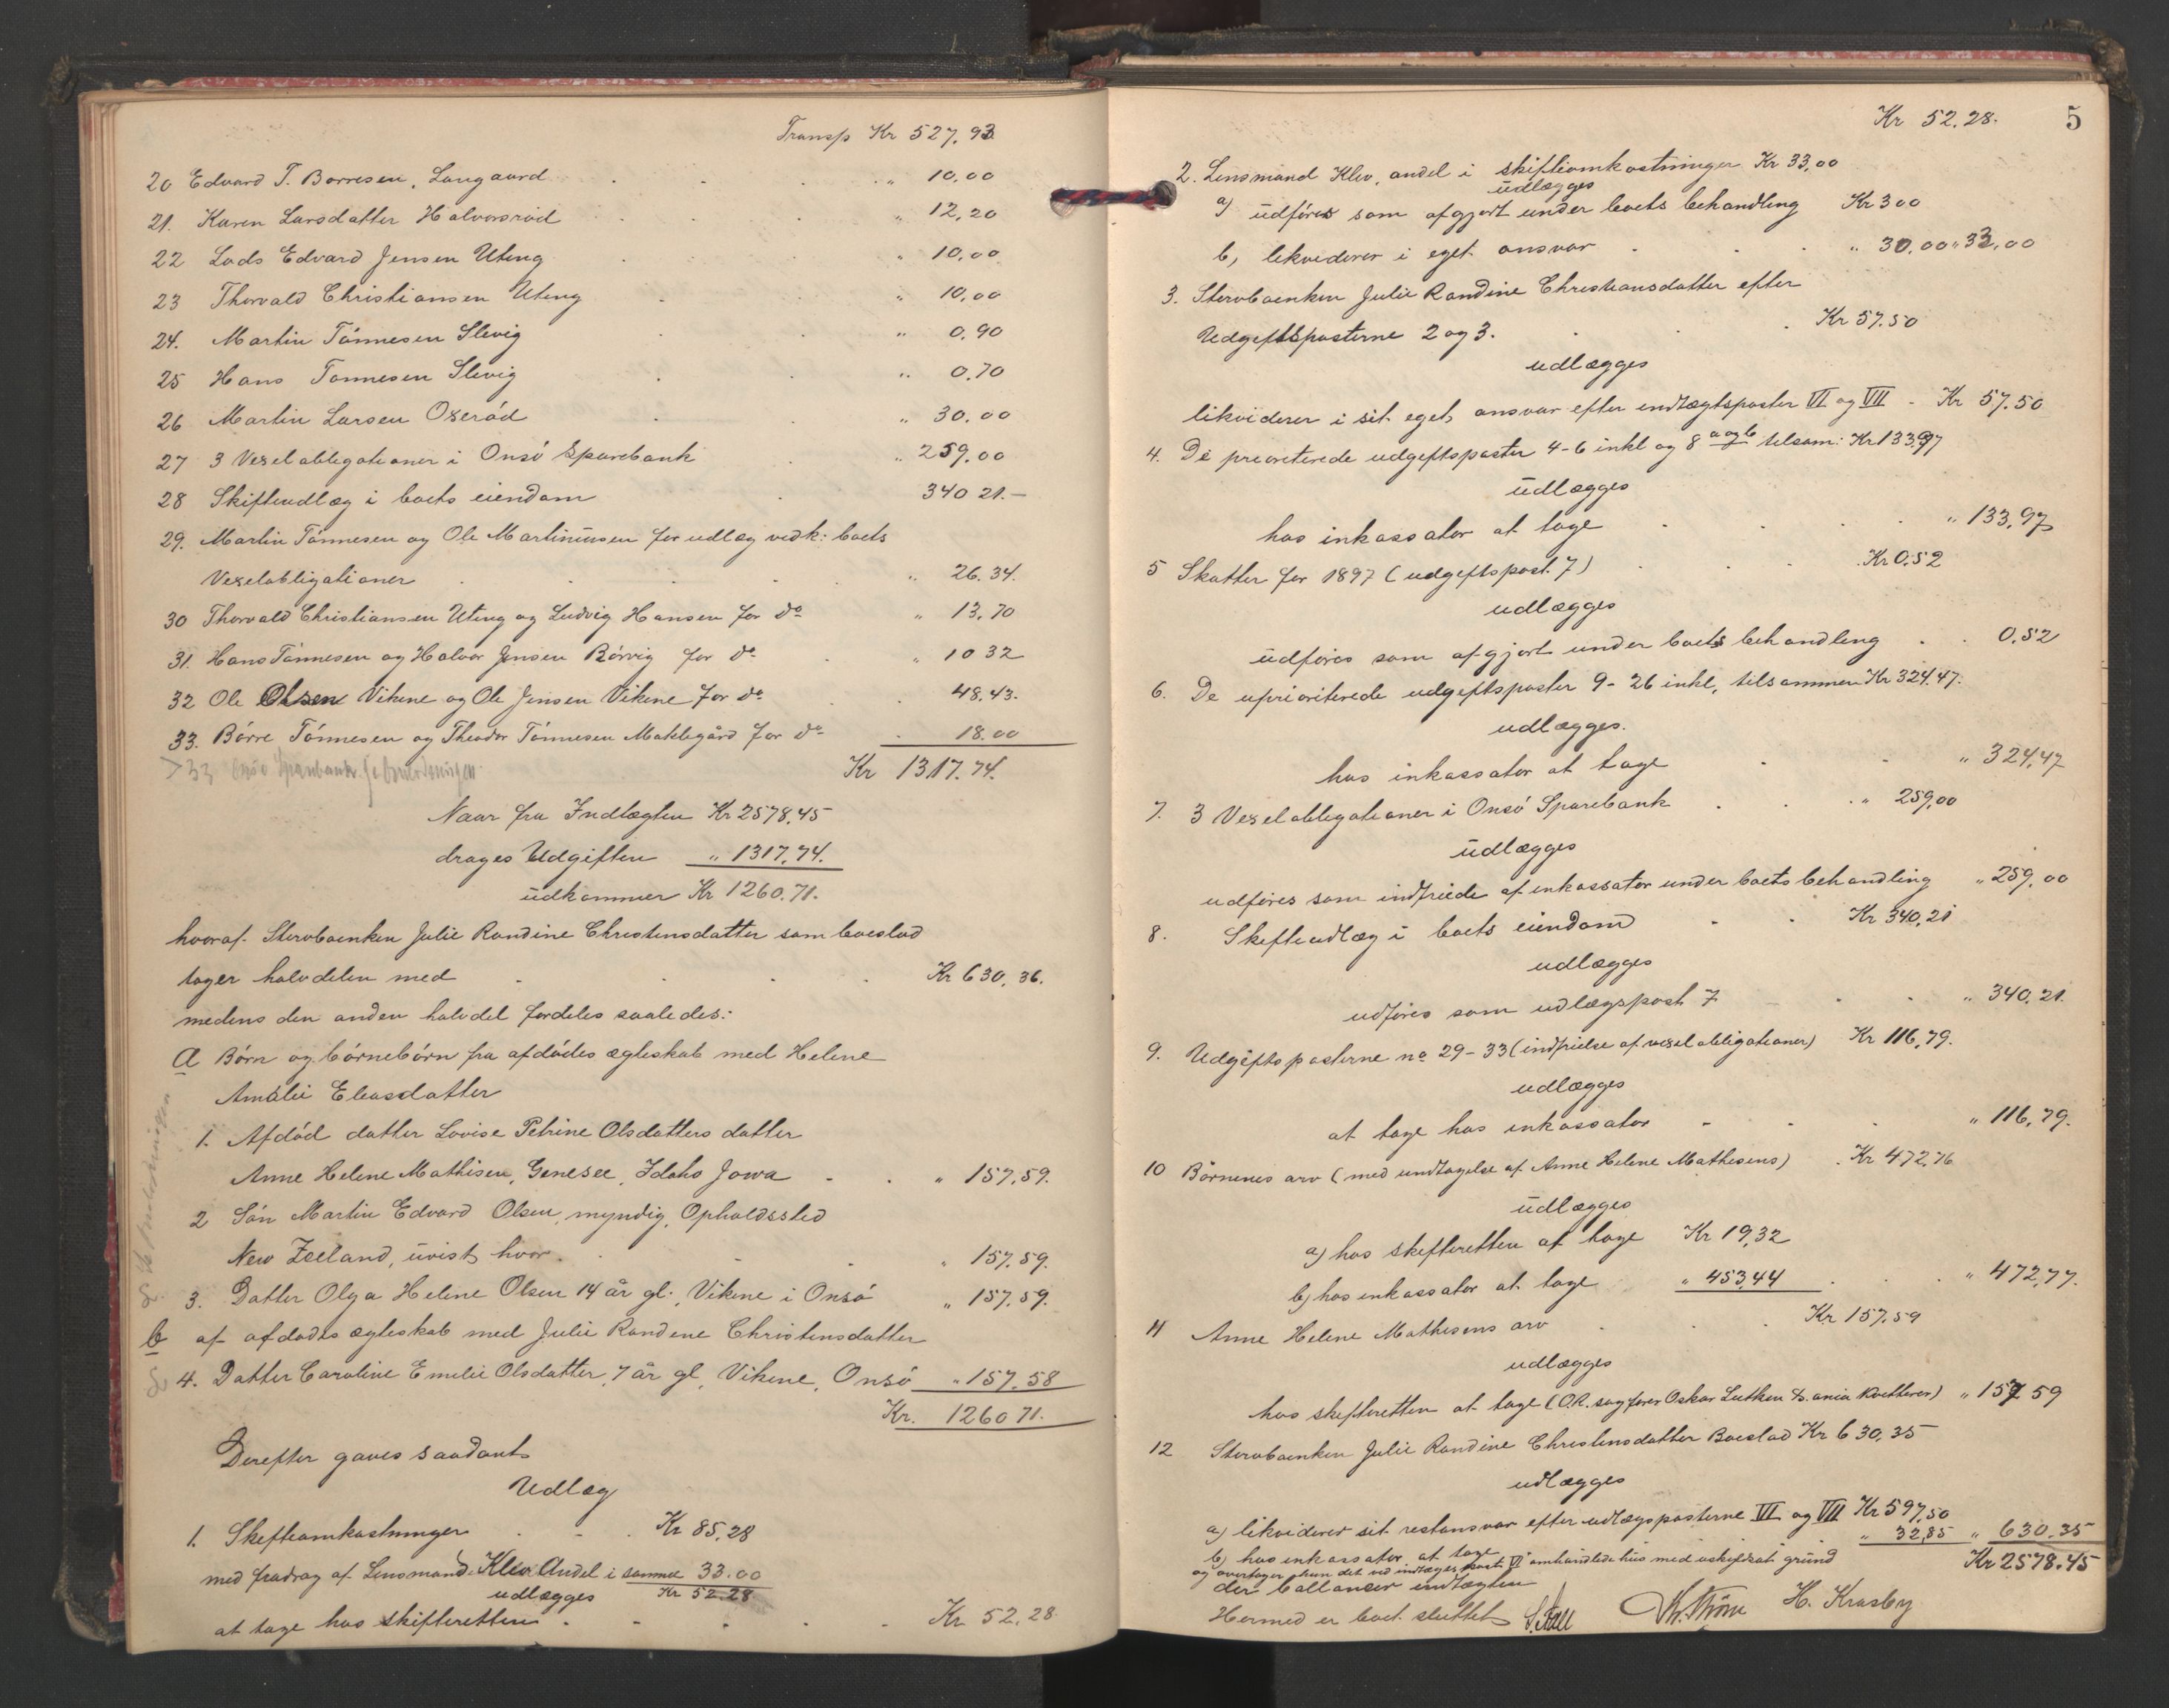 Transp Kr 527,93
20 Edvard T. Borresen, Langaard " 10,00
21. Karen Larsdatter Halvorsröd " 12,20
22 Lods Edvard Jensen Uteng " 10,00
23 Thorvald Christiansen Uteng " 10,00
24. Martin Tónnesen Slevig " 0,90
25 Hans Tonnesen Slevig " 0,70
26 Martin Larsen Oxeród " 30.00
27 3 Vexelobligationer i Onsó Sparebank " 259.00
28 Skifteudlæg i boets eiendom 340 21.-
29. Martin Tónnesen og Ole Martiniusen for udlæg vedk: boets
Vexelobligationer " 26.34.
30 Thorvald Christiansen Uteng og Ludvig Hansen for do " 13,70
31. Hans Tónnesen og Halvor Jensen Rórvig for do " 10 32
32 Ole Olsen Vikene og Ole Jensen Vikene for do 48,43.
33. Börre Tónnesen og Theodor Tónnesen Maklegård for do 18.00
Kr 1317.74.
Naar fra Indtægten Kr 2578,45
drages Udgiften " 1317,74.
udkommer Kr 1260.71.
hvoraf Stervboenken Julie Randine Christensdatter som boeslod
tager halvdelen med Kr 630,36.
medens den anden halvdel fordeles saaledes:
A Börn og bórnebórn fra afdódes ægteskab med Helene
Amalie Eleasdatter
1. Afdód datter Lovise Petrine Olsdatters datter
Anne Helene Mathisen, Genesee, Idaho Jowa " 157,59.
2 Són Martin Edvard Olsen, myndig, Opholdssted
New Zeeland, uvist hvor " 157,59.
3. Datter Olga Helene Olsen 14 år gl., Vikene i Onsó " 157,59.
b af afdodes ægteskab med Julie Randene Christensdatter
4. Datter Caroline Emilie Olsdatter, 7 år gl, Vikene, Onsó " 157,58
Kr. 1260 71.
Derefter gaves saadant
Udlæg
1. Skifteomkostninger Kr 85,28
med fradrag af Lensmand Klev Andel i samme 33.00
udlægges Kr 52.28
at tage hos skifteretten Kr 52,28
5
Kr 52,28.
2. Lensmand Klev, andel i skifteomkostninger Kr 33,00
udlægges
a) udföres som afgjort under boets behandling Kr 3 00
b, likviderer i eget ansvar " 30.00 " 33,00
3. Stervboenken Julie Randine Christiansdatter efter
Udgiftsposterne 2 og 3. Kr 57.50
udlægges
likviderer i sit eget ansvar efter indtægtsposter VI og VII - Kr 57.50
4. De prioriterede udgiftsposter 4-6 inkl og 8 a og b tilsam: Kr 133,97
udlægges
hos inkassator at tage " 133,97
5 Skatter for 1897 (udgiftspost 7) Kr 0,52
udlægges
udföres som afgjort under boets behandling 0,52
6. De uprioriterede udgiftsposter 9-26 inkl, tilsammen Kr 324,47.
udlægges.
hos inkassator at tage " 324,47
7. 3 Vexelobligationer i Onsó Sparebank " 259,00
udlægges
udföres som indfriede af inkassator under boets behandling " 259,00
8. Skifteudlæg i boets eiendom Kr 340,21
udlægges
udföres som udlægspost 7 " 340,21.
9. Udgiftsposterne no 29-33 (indfrielse af vexelobligationer) Kr 116,79.
udlægges
at tage hos inkassator " 116,79.
10 Börnenes arv (med undtagelse af Anne Helene Mathesens) Kr 472,76
udlægges
a) hos skifteretten at tage Kr 19,32
b) hos inkassator at tage " 453,44 " 472,77.
11 Anne Helene Mathesens arv Kr 157,59
udlægges
hos skifteretten at tage (O.R. sagförer Oskar Lutken " 157 59
12 Stervboenken Julie Randine Christensdatter Boeslod Kr 630,35
udlægges
a) likviderer sit restansvar efter udlægsposterne VI og VII Kr 597,50
b) hos inkassator at tage " 32,85 " 630.35
og overtager hun det ved indtægtspost VI omhandlede hus med uskiftet grund Kr 2578.45
der ballancer indtægten
Hermed er boet sluttet H. Krasby